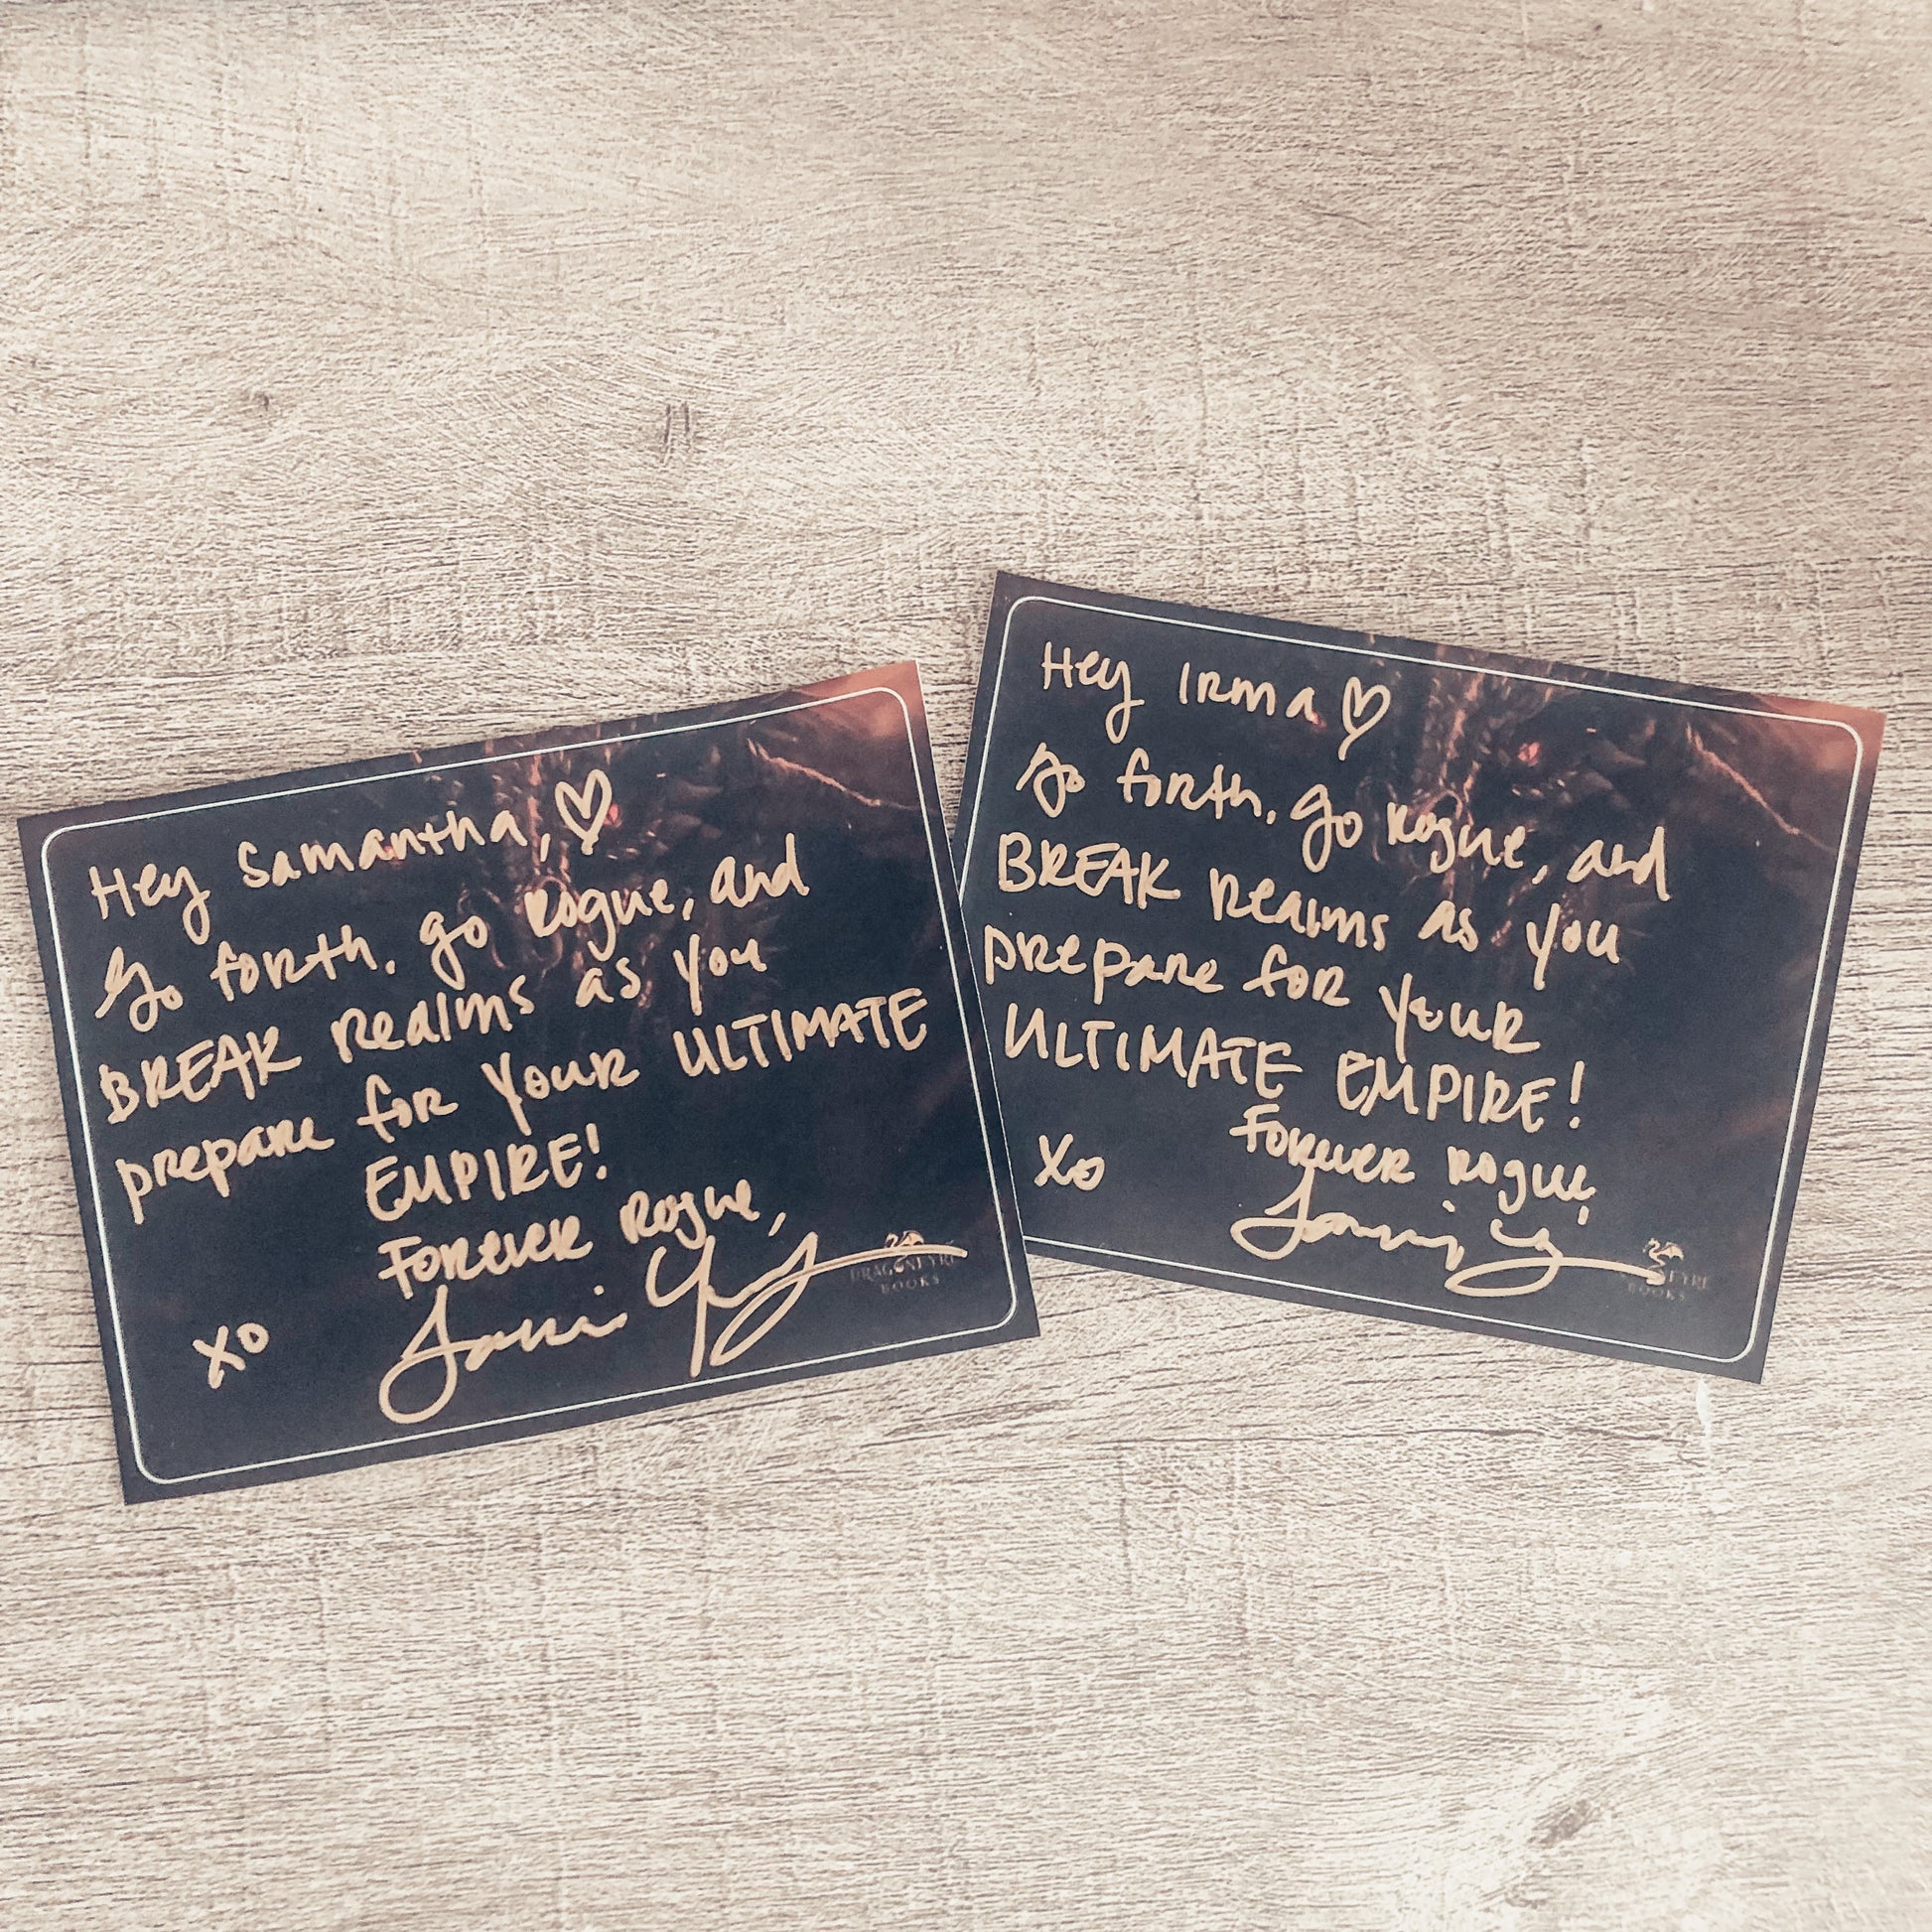 Hey Samantha, ♡
Go forth, go rogue, and
BREAK realms as you
prepare for your ULTIMATE
EMPIRE!
Forever Rogue,
xo
DRAGONFYRE
BOOKS
Hey Irma ♡
Go forth, go rogue, and
BREAK realms as you
prepare for your
ULTIMATE EMPIRE!
Forever Rogue,
xo
BOOKS